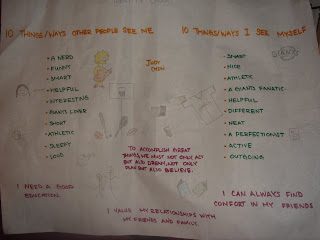 10 THINGS/WAYS OTHER PEOPLE SEE ME
• A NERD
• FUNNY
• SMART
• HELPFUL
• INTERESTING
• GIANTS LOVER
• SHORT
• ATHLETIC
• SLEEPY
• LOUD
I NEED A GOOD
EDUCATION.
TO ACCOMPLISH GREAT
THINGS, WE MUST NOT ONLY ACT
BUT ALSO DREAM, NOT ONLY
PLAN BUT ALSO BELIEVE.
I VALUE MY RELATIONSHIPS WITH
MY FRIENDS AND FAMILY.
10 THINGS/WAYS I SEE MYSELF
• SMART
• NICE
• ATHLETIC
• A GIANTS FANATIC
• HELPFUL
• DIFFERENT
• NEAT
• A PERFECTIONIST
• ACTIVE
• OUTGOING
GIANTS
I CAN ALWAYS FIND
COMFORT IN MY FRIENDS